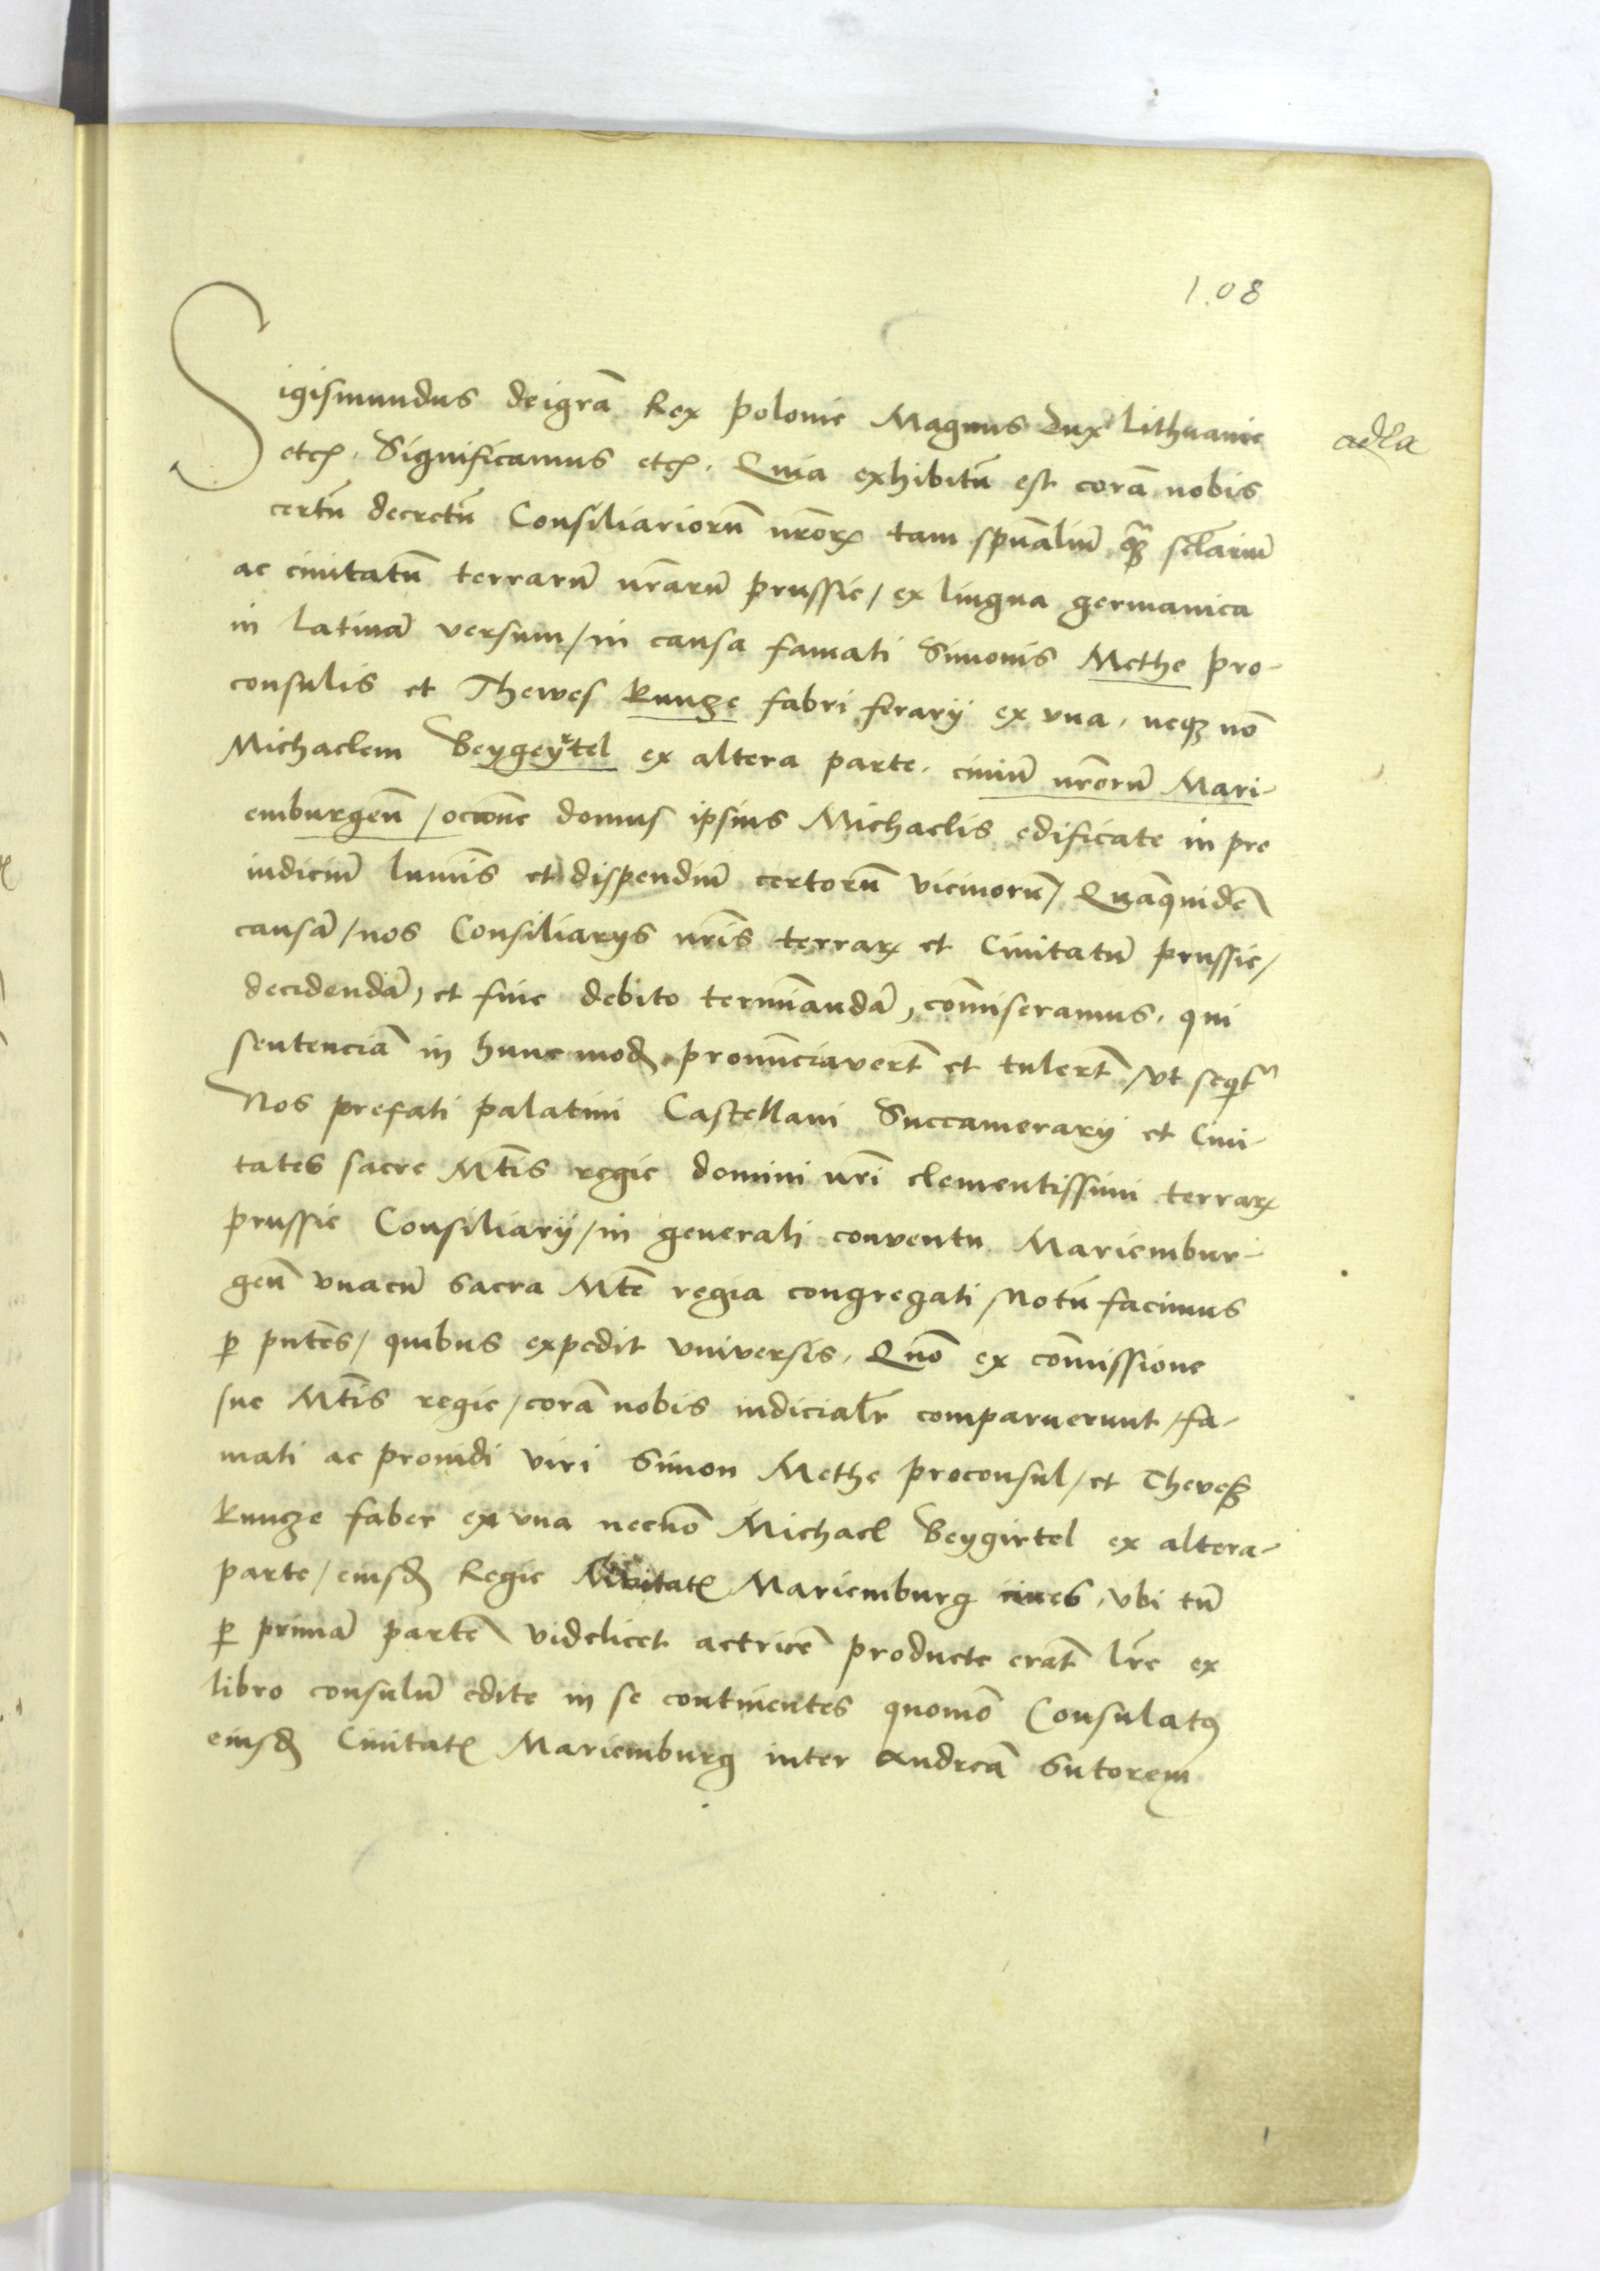 108
Sigismundus dei grã Rex polonie Magnus Dux Lithuanie
etc̃. Significamus etc̃. Quia exhibitũ est corã nobis
certũ decretũ Consiliariorũ nr̃orꝝ tam spũaliũ ꝙ̃ sclariũ
ac ciuitatũ terrarũ nr̃arũ prussie / ex lingua germanica
in latinã versum / in causa famati Simonis Methe pro-
consulis et Thewes Runge fabri ferarij ex vna, neqꝫ nõ
Michaelem Beygeyrtel ex altera parte. ciuiũ nr̃orũ Mari-
emburgeñ / occõne domus ipsius Michaelis edificate in pre
iudiciũ lumĩs et dispendiũ certorũ vicinorũ / Quãquidẽ
causã / nos Consiliarijs nr̃is terrarꝝ et Ciuitatũ prussie /
decidendã, et fine debito termĩandã, cõmiseramus, qui
sentenciã in hunc mod̃ pronũciavert̃ et tulert̃ / vt seqt̃r
Nos prefati palatini Castellani Succamerarij et Ciui-
tates sacre Mt̃is regie domini nr̃i clementissimi terrarꝝ
prussie Consiliarij / in generali conventu Mariembur-
geñ vnacũ sacra Mt̃e regia congregati / Notũ facimus
ꝑ pñtes / quibus expedit vniversis. Quõ ex cõmissione
sue Mt̃is regie / corã nobis iudicialr̃ comparuerunt / fa-
mati ac prouidi viri Simon Methe proconsul / et Theves
Runge faber ex vna necnõ Michael Beygirtel ex altera
parte / eiusd̃ Regie Ciuitatꝭ Mariemburg ciues, vbi tũ
ꝑ primã partẽ videlicet actricẽ producte erãt lr̃e ex
libro consulũ edite in se continentes quomõ Consulatꝰ
eiusd̃ Ciuitatꝭ Mariemburg inter Andreã Sutorem